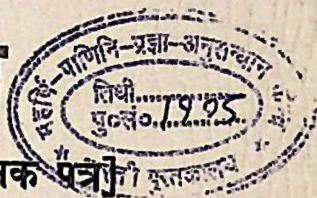 महर्षि-पाणिनि-प्रज्ञा-अनुसन्धान
तिथी..............
पु०सं०.1995
पुस्तकालय
क पत्र]